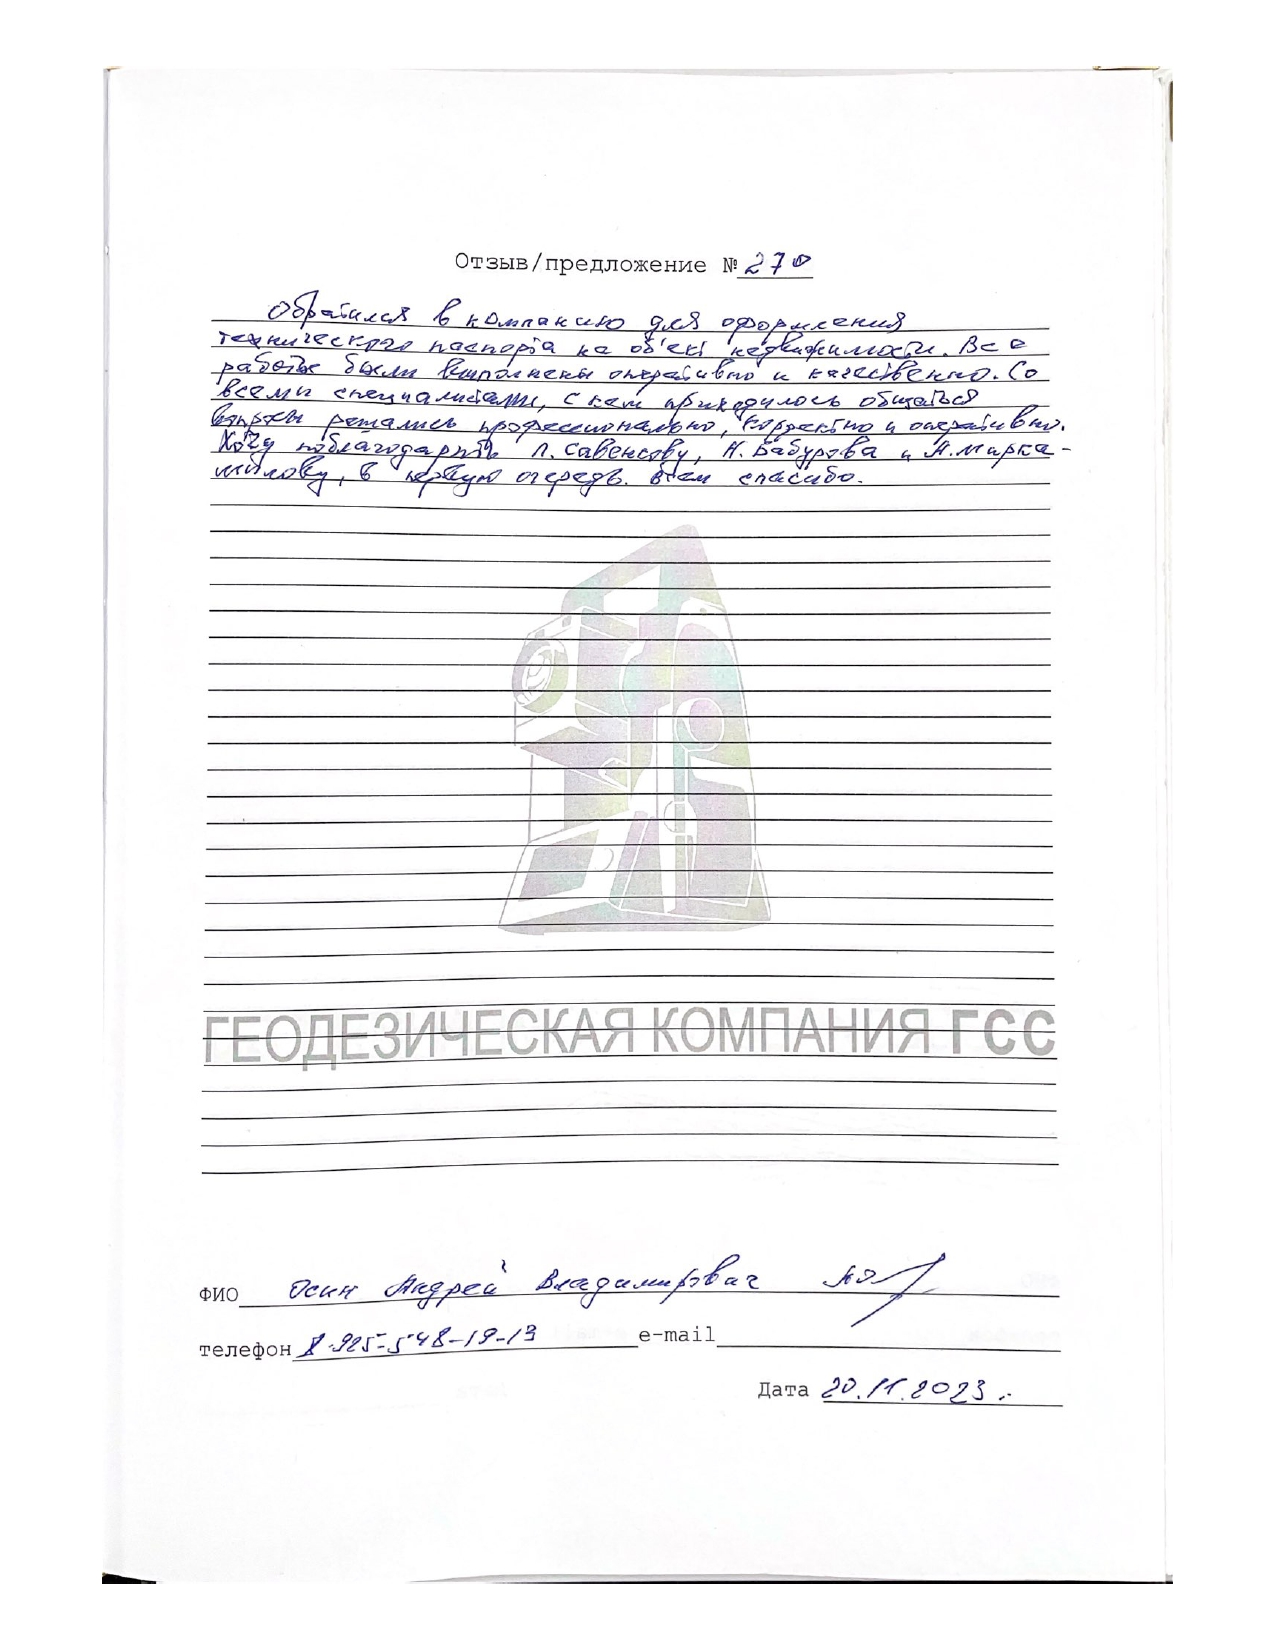 Отзыв/предложение № 270
Обратился в компанию для оформления
технического паспорта на об'ект недвижимости. Все
работы были выполнены оперативно и качественно. Со
всеми специалистами, с кем приходилось общаться
вопросы решались профессионально, корректно и оперативно.
Хочу поблагодарить Л. Савенкову, Н. Бабурова и А. Марка-
шилову, в первую очередь. Всем спасибо.
ГЕОДЕЗИЧЕСКАЯ КОМПАНИЯ ГСС
ФИО Осин Андрей Владимирович
телефон 8-925-548-19-13 e-mail
Дата 20.11.2023.